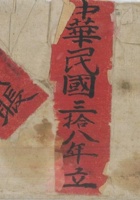 中華民國三拾八年立
張